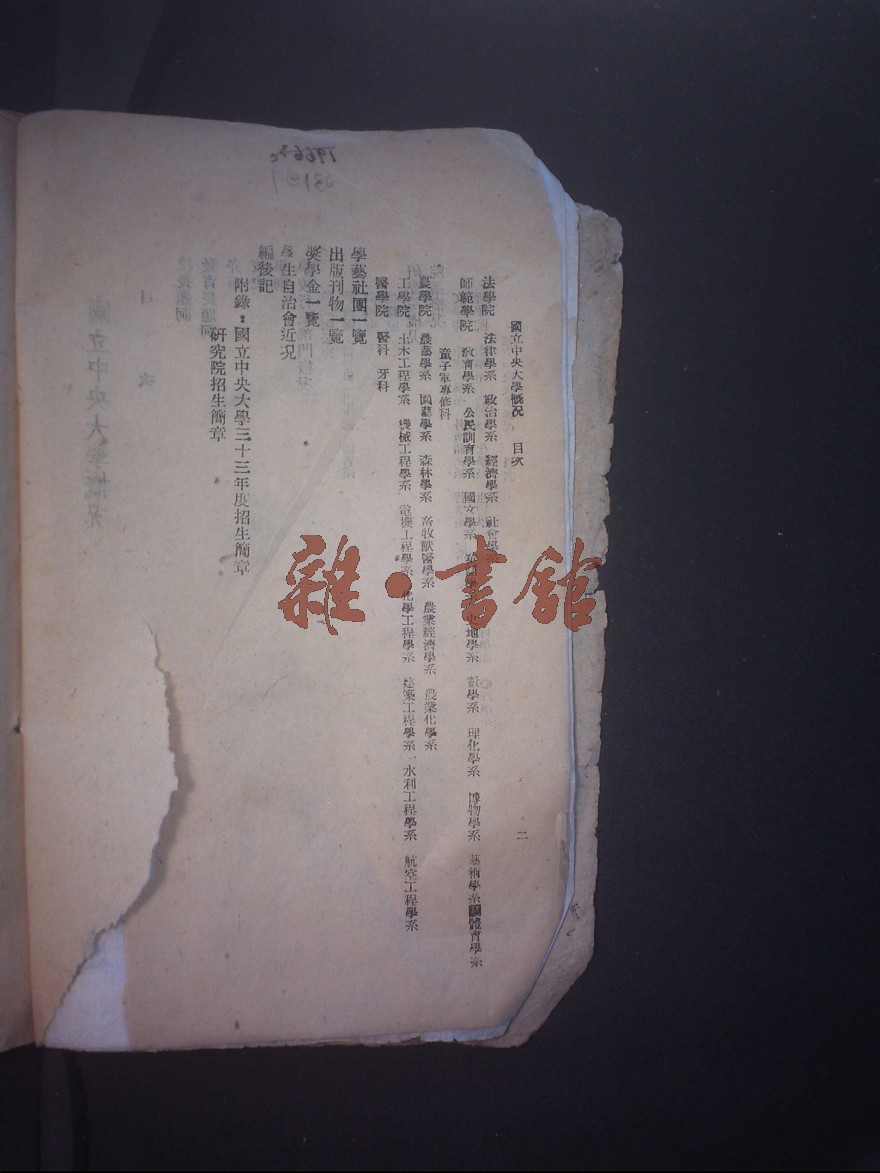 國立中央大學概况 目次 二
法學院 法律學系 政治學系 經濟學系 社會學
師範學院 教育學系 公民訓育學系 國文學系 史地學系 數學系 理化學系 博物學系 藝術學系 體育學系
童子軍專修科
農學院 農藝學系 園藝學系 森林學系 畜牧獸醫學系 農業經濟學系 農業化學系
工學院 土木工程學系 機械工程學系 電機工程學系 化學工程學系 建築工程學系 水利工程學系 航空工程學系
醫學院 醫科 牙科
學藝社團一覽
出版刊物一覽
獎學金一覽
學生自治會近况
編後記
附錄：國立中央大學三十三年度招生簡章
研究院招生簡章
雜·書舘